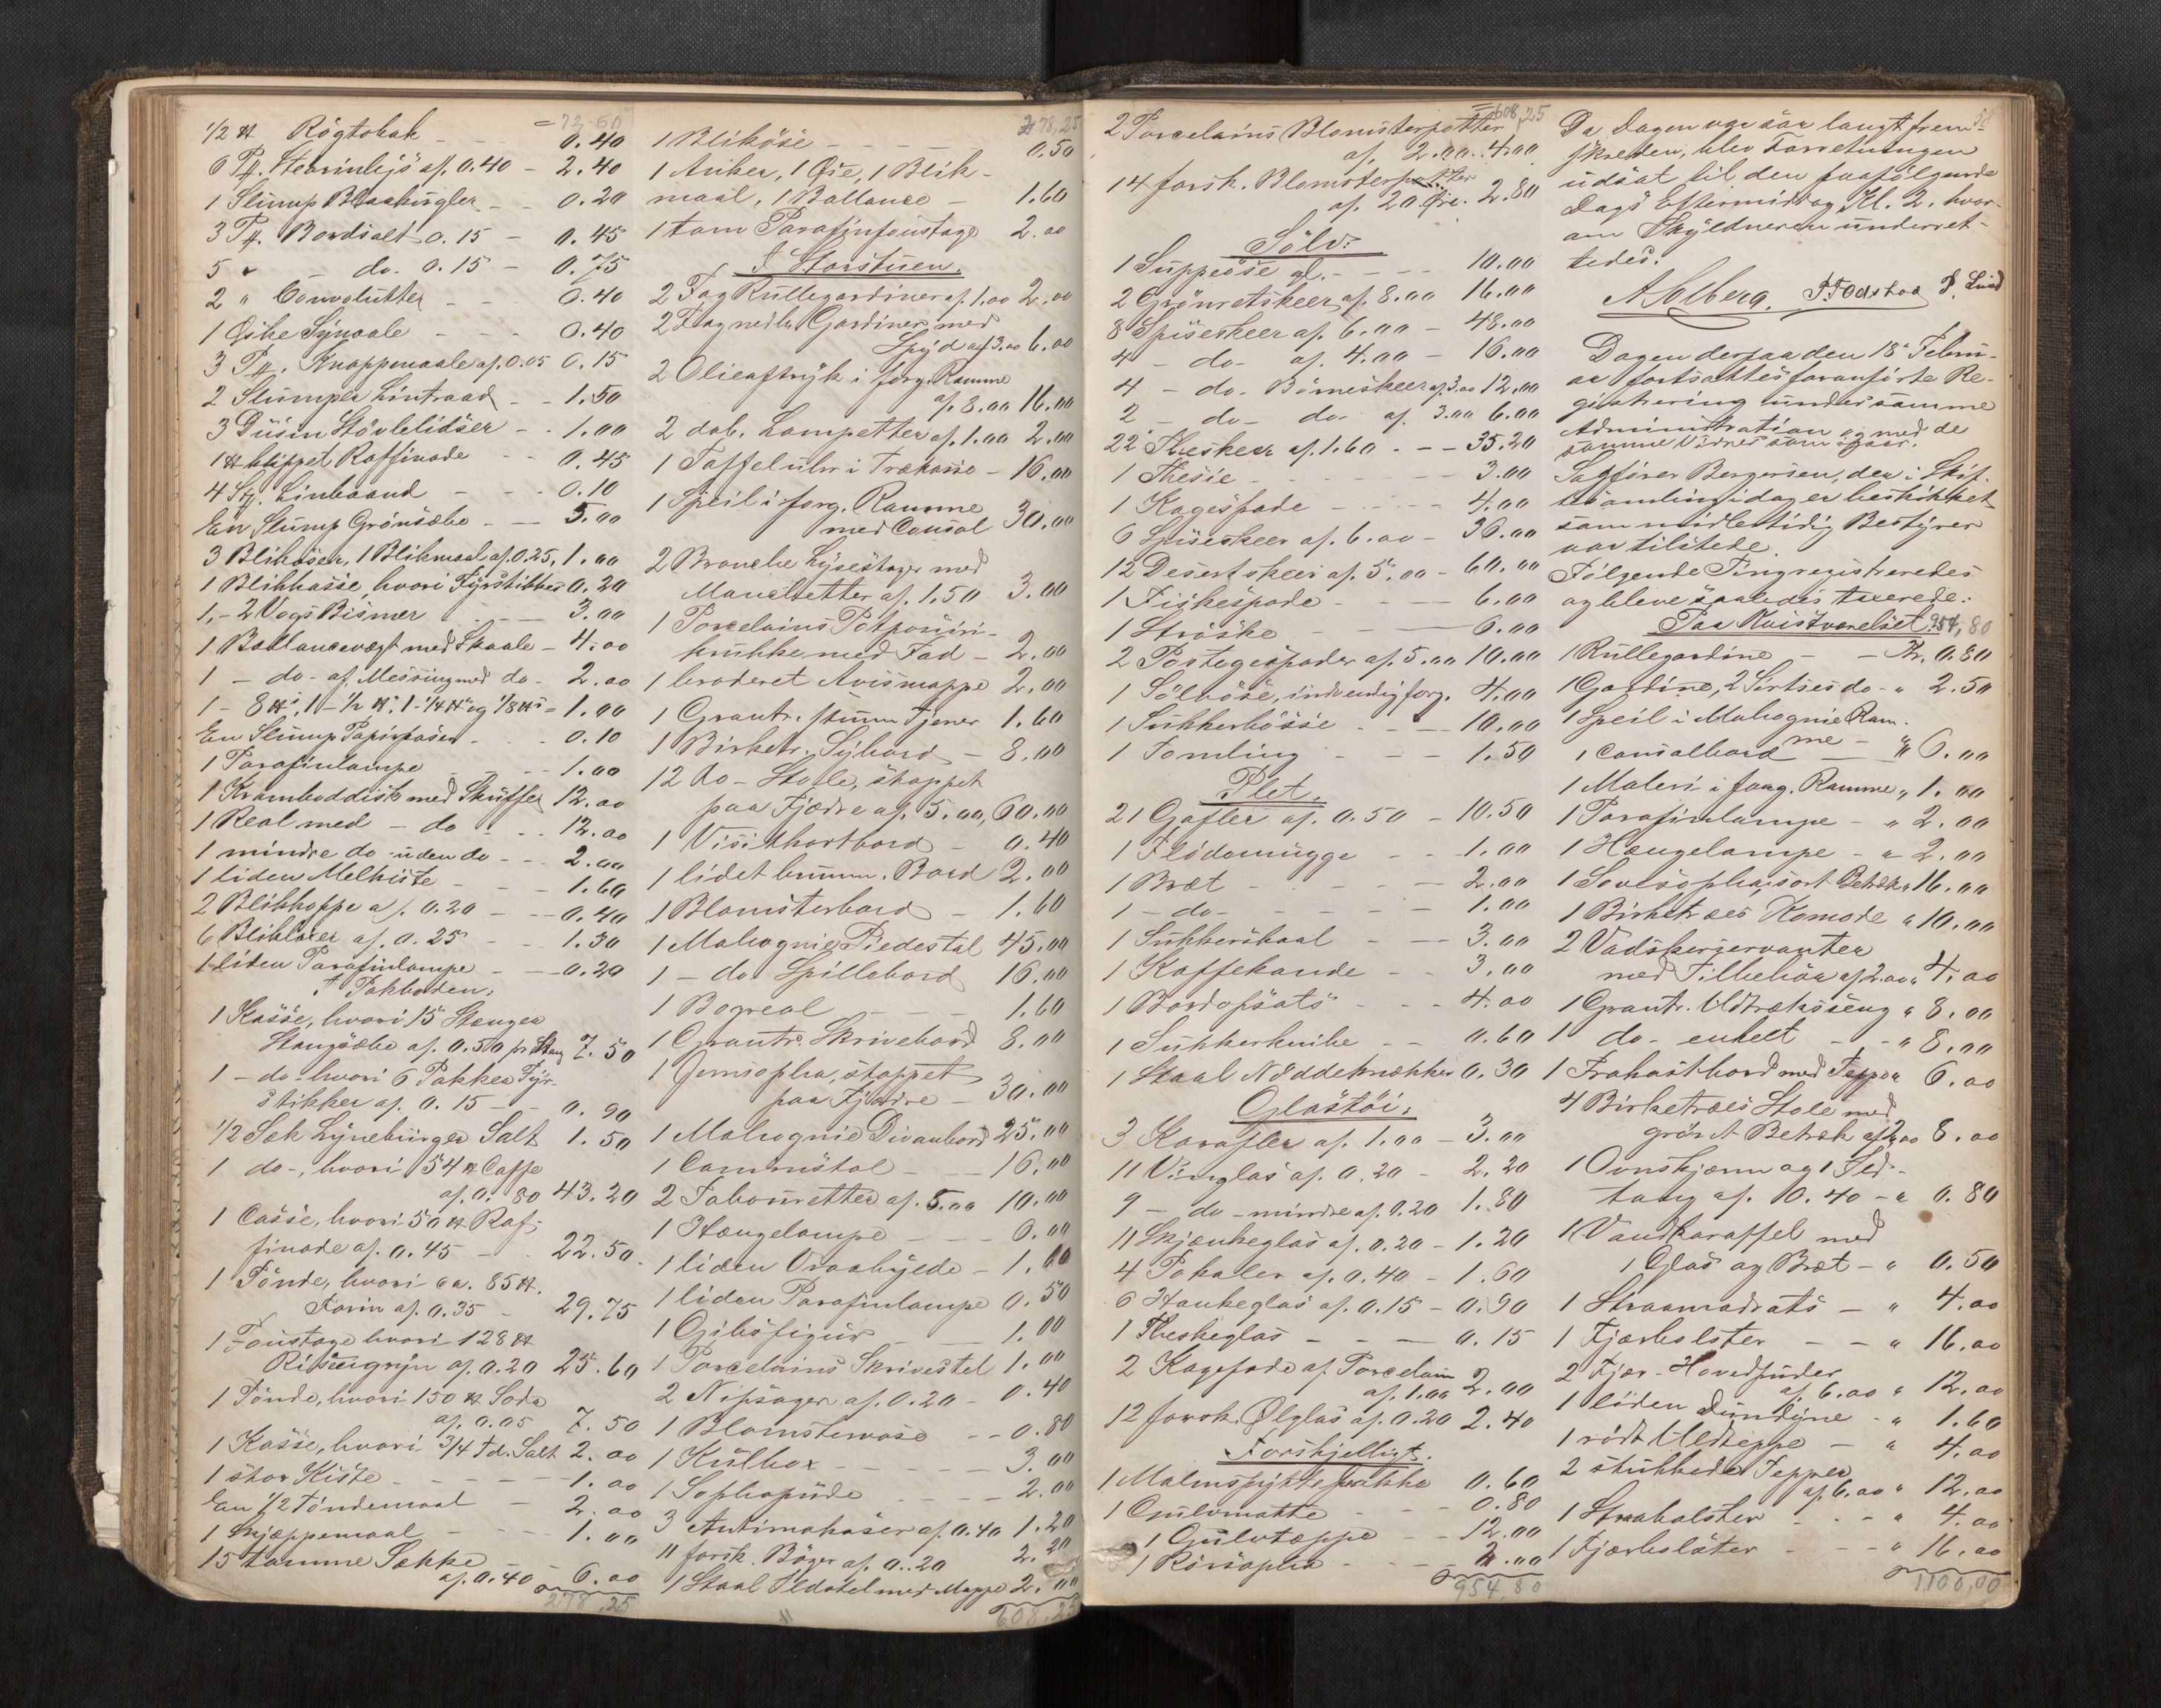 = 73,60
1/2 ℔ Rögtobak - - 0.40
6 Pk. Stearinlys af. 0.40 - 2.40
1 Slump Blaakugler - - 0.20
3 Pk. Bordsalt 0.15 - 0.45
5 " - do. 0.15 - 0.75
2 " Convolutter - - 0.40
1 Æske Synaale - - 0.40
3 Pk. Knappenaale af. 0.05 0.15
2 Slumper Lintraad - - 1.50
3 Dusin Stövlelidser - - 1.00
1 ℔ klippet Raffinade - - 0.45
4 Stk. Linbaand - - 0.10
En Slump Grönsæbe - - 5.00
3 Blikösen, 1 Blikmaal af. 0.25, 1.00
1 Blikkasse, hvori Fyrstikker 0.20
1, - 2 Vogs Bismer - 3.00
1 Ballancevægt med Skaale - 4.00
1 - do - af. Messing med do - 2.00
1 - 8 ℔s, 1 - 1/2 ℔s, 1 - 1/4 ℔ og 1/8 ℔s = 1.00
En Slump Papirposer - - 0.10
1 Parafinlampe - - 1.00
1 Kramboddisk med Skuffer 12.00
1 Real med - do - - 12.00
1 mindre do uden do - - 2.00
1 liden Melkiste - - 1.60
2 Blikkoppe af. 0.20 - - 0.40
6 Bliklaier af. 0.25 - - 1.30
1 liden Parafinlampe - - 0.20
I Pakboden:
1 Kasse, hvori 15 Stænger
Stangsæbe af. 0.50 pr Stang 7.50
1 - do - hvori 6 Pakker Fyr-
stikker af. 0.15 - - 0.90
1/2 Sæk Lyneburger Salt 1.50
1 do -, hvori 54 ℔ Caffe
af. 0.80 43.20
1 Casse, hvori 50 ℔ Raf-
finade af. 0.45 - - 22.50
1 Tönde, hvori ca. 85 ℔.
Farin af. 0.35 - 29.75
1 Foustage hvori 128 ℔
Risengryn af. 0.20 25.60
1 Tönde, hvori 150 ℔ Soda
af. 0.05 7.50
1 Kasse, hvori 3/4 Td. Salt 2.00
1 stor Kiste - - 1.00
En 1/2 Töndemaal - 2.00
1 Skjæppemaal - - 1.00
15 tomme Sække - -
af. 0.40 - 6.00
278,25
278,25
1 Bliköse - - - 0.50
1 Anker, 1 Öse, 1 Blik-
maal, 1 Ballance - 1.60
1 tom Parafinfoustage 2.00
I Storstuen.
2 Fag Rullegardiner af. 1.00 2.00
2 Fag nedh. Gardiner med
Spyd af 3.00 6.00
2 Olieaftryk i forg. Ramme
af. 8.00 16.00
2 dob. Lampetter af. 1.00 2.00
1 Taffeluhr i Trækasse - 16.00
1 Speil i forg. Ramme
med Consol 30.00
2 Bronche Lysestager med
Manchetter af. 1.50 3.00
1 Porcelains Potpouri-
krukke med Fad - 2.00
1 broderet Avismappe 2.00
1 Grantr. stum Tjener 1.60
1 Birketr. Sybord - 8.00
12 do - Stole, stoppet
paa Fjædre af. 5.00, 60.00
1 Visitkortbord - 0.40
1 lidet brunm. Bord 2.00
1 Blomsterbord - 1.60
1 Mahognie Piedestal 45.00
1 - do - Spillebord 16.00
1 Bogreal - - 1.60
1 Grantr. Skrivebord 8.00
1 Jernsopha, stoppet
paa Fjædre - 30.00
1 Mahognie Divanbord 25.00
1 Cannistol - - 16.00
2 Tabouretter af. 5.00 10.00
1 Hængelampe - - 6.00
1 liden Vraahylde - 1.60
1 liden Parafinlampe 0.50
1 Gibsfigur - - 1.00
1 Porcelains Skrivestel 1.00
2 Nipsager af. 0.20 - 0.40
1 Blomstervase - - 0.80
1 Kulbox - - 3.00
1 Sophapude - - 2.00
3 Antimakaser af. 0.40 1.20
11 forsk. Bøger af. 0.20 2.20
1 Staal Ildstel med Mappe 2.00
608,25
= 608,25
2 Porcelains Blomsterpotter
af. 2.00. 4.00
14 forsk. Blomsterpotter
af. 20 Öre. 2.80
Sölv:
1 Suppeöse gl. - - 10.00
2 Grönretskeer af. 8.00 16.00
8 Spiseskeer af. 6.00 - 48.00
4 - do - af. 4.00 - 16.00
4 - do. Börneskeer af. 3.00 12.00
2 - do - do - af. 3.00 6.00
22 Theskeer af. 1.60 - - 35.20
1 Thesie - - 3.00
1 Kagespade - - 4.00
6 Spiseskeer af. 6.00 - 36.00
12 Desertskeer af. 5.00 - 60.00
1 Fiskespade - - 6.00
1 Ströske - - 6.00
2 Postegespader af. 5.00 10.00
1 Sölvöse, indvendig forg. 4.00
1 Sukkerbösse - - 10.00
1 Tomling - - 1.50
Plet.
21 Gafler af. 0.50 - 10.50
1 Flödemugge - - 1.00
1 Bræt - - 2.00
1 - do - - 1.00
1 Sukkerskaal - - 3.00
1 Kaffekande - - 3.00
1 Bordopsats - - 4.00
1 Sukkerknibe - - 0.60
1 Staal Nöddeknækker 0.30
Glastöi:
3 Karafler af. 1.00 - 3.00
11 Vinglas af. 0.20 - 2.20
9 - do - mindre af. 0.20 1.80
11 Skjænkeglas af. 0.20 - 1.20
4 Pokaler af. 0.40 - 1.60
6 Hankeglas af. 0.15 - 0.90
1 Theskeglas - - 0.15
2 Kagefade af. Porcelain
af. 1.00 2.00
12 forsk. Ölglas af. 0.20 2.40
Forskjelligt.
1 Malmspyttebakke 0.60
1 Gulvmatte - - 0.80
1 Gulvtæppe - - 12.00
1 Rörsopha - - 2.00
954,80
58
Da Dagen var saa langt frem-
skreden, blev Forretningen
udsat til den paafölgende
Dags Eftermiddag Kl. 2. hvor-
om Skyldneren underret-
tedes.
A Solberg. P. Fodstad J. Lund
Dagen derpaa den 18de Febru-
ar fortsattes foranførte Re-
gistrering under samme
Administration og med de
samme Vidner som igaar.
Sagförer Bergersen, der i Skif-
tesamling idag er beskikket
som midlertidig Bestyrer
var tilstede.
Følgende Ting registreredes
og bleve saaledes taxerede:
Paa Kvistværelset: 954,80
1 Rullegardine - - Kr. 0.80
1 Gardine, 2 Sirtses do - " 2.50
1 Speil i Mahognie Ram-
me -
1 Consolbord - " 6.00
1 Maleri i forg. Ramme " 1.00
1 Parafinlampe - " 2.00
1 Hængelampe - " 2.00
1 Sovesopha, sort Betræk " 16.00
1 Birketræes Komode " 10.00
2 Vadskeservanter
med Tilbehör af 2.00 " 4.00
1 Grantr. Udtræksseng " 8.00
1 do - enkelt - - " 8.00
1 Frokostbord med Teppe " 6.00
4 Birketræes Stole med
grönt Betræk af 2.00 8.00
1 Ovnskjærm og 1 Ild-
tang af. 0.40 - " 0.80
1 Vandkaraffel med
1 Glas og Bræt - " 0.50
1 Straamadrats - " 4.00
1 Fjærbolster - - " 16.00
2 Fjær-Hovedpuder
af. 6.00 " 12.00
1 liden Dundyne - " 1.60
1 rödt Uldteppe - " 4.00
2 stukkede Tepper
af. 6.00 " 12.00
1 Straabolster - - " 4.00
1 Fjærbolster - - " 16.00
1100,00